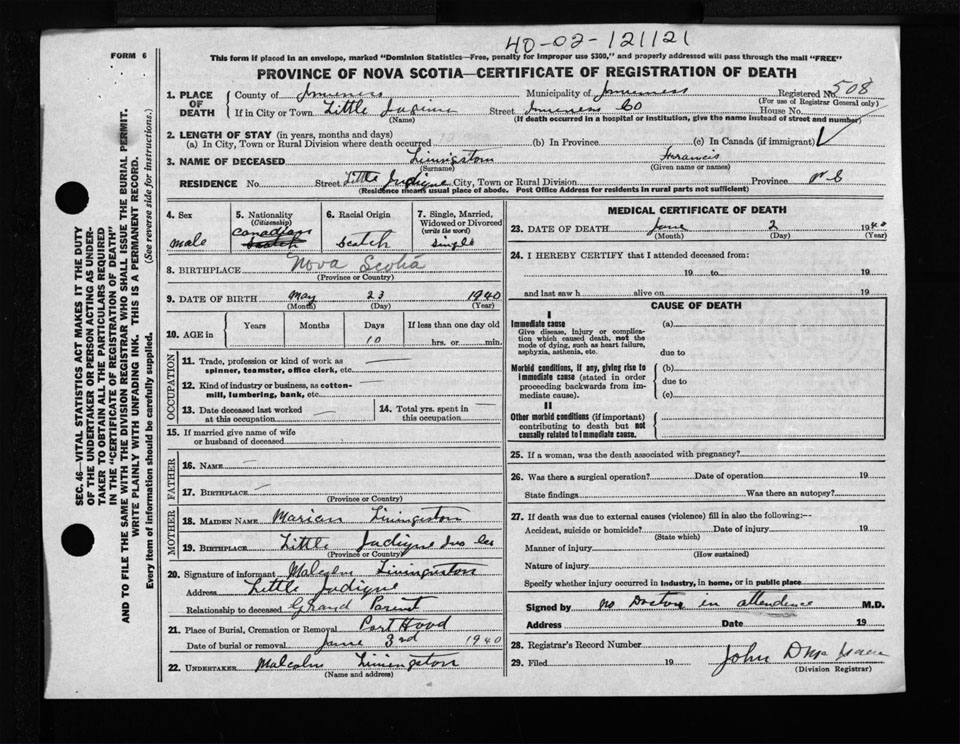 40-02-121121
FORM 6
This form if placed in an envelope, marked "Dominion Statistics—Free, penalty for improper use $300," and properly addressed will pass through the mail "FREE"
PROVINCE OF NOVA SCOTIA—CERTIFICATE OF REGISTRATION OF DEATH
1. PLACE OF DEATH
County of Inverness Municipality of Inverness Registered No. 508
(For use of Registrar General only)
If in City or Town Little Judique Street Inverness Co House No.
(Name) (If death occurred in a hospital or institution, give the name instead of street and number)
2. LENGTH OF STAY (in years, months and days)
(a) In City, Town or Rural Division where death occurred (b) In Province (c) In Canada (if immigrant)
3. NAME OF DECEASED Livingston Francis
(Surname) (Given name or names)
RESIDENCE No. Street Little Judique City, Town or Rural Division Province N S
(Residence means usual place of abode. Post Office Address for residents in rural parts not sufficient)
4. Sex
male
5. Nationality
(Citizenship)
Canadian
Scotch
6. Racial Origin
Scotch
7. Single, Married, Widowed or Divorced
(write the word)
Single
8. BIRTHPLACE Nova Scotia
(Province or Country)
9. DATE OF BIRTH May 23 1940
(Month) (Day) (Year)
10. AGE in
Years Months Days If less than one day old
10 hrs. or min.
OCCUPATION
11. Trade, profession or kind of work as spinner, teamster, office clerk, etc.
12. Kind of industry or business, as cotton-mill, lumbering, bank, etc.
13. Date deceased last worked at this occupation
14. Total yrs. spent in this occupation
15. If married give name of wife or husband of deceased
FATHER
16. NAME
17. BIRTHPLACE
(Province or Country)
MOTHER
18. MAIDEN NAME Marion Livingston
19. BIRTHPLACE Little Judique Inv Co
(Province or Country)
20. Signature of informant Malcolm Livingston
Address Little Judique
Relationship to deceased Grand Parent
21. Place of Burial, Cremation or Removal Port Hood
Date of burial or removal June 3rd 1940
22. UNDERTAKER Malcolm Livingston
(Name and address)
MEDICAL CERTIFICATE OF DEATH
23. DATE OF DEATH June 2 1940
(Month) (Day) (Year)
24. I HEREBY CERTIFY that I attended deceased from:
19 to 19
and last saw h alive on 19
CAUSE OF DEATH
I
Immediate cause
Give disease, injury or complication which caused death, not the mode of dying, such as heart failure, asphyxia, asthenia, etc.
(a)
due to
Morbid conditions, if any, giving rise to immediate cause (stated in order proceeding backwards from immediate cause).
(b)
due to
(c)
II
Other morbid conditions (if important) contributing to death but not causally related to immediate cause.
25. If a woman, was the death associated with pregnancy?
26. Was there a surgical operation? Date of operation 19
State findings Was there an autopsy?
27. If death was due to external causes (violence) fill in also the following:—
Accident, suicide or homicide? Date of injury 19
(State which)
Manner of injury
(How sustained)
Nature of injury
Specify whether injury occurred in industry, in home, or in public place
Signed by no Doctor in attendence M.D.
Address Date 19
28. Registrar's Record Number
29. Filed 19 John D
(Division Registrar)
SEC. 46—VITAL STATISTICS ACT MAKES IT THE DUTY
OF THE UNDERTAKER OR PERSON ACTING AS UNDER-
TAKER TO OBTAIN ALL THE PARTICULARS REQUIRED
IN THE "CERTIFICATE OF REGISTRATION OF DEATH"
AND TO FILE THE SAME WITH THE DIVISION REGISTRAR WHO SHALL ISSUE THE BURIAL PERMIT.
WRITE PLAINLY WITH UNFADING INK. THIS IS A PERMANENT RECORD.
Every item of information should be carefully supplied. (See reverse side for instructions.)